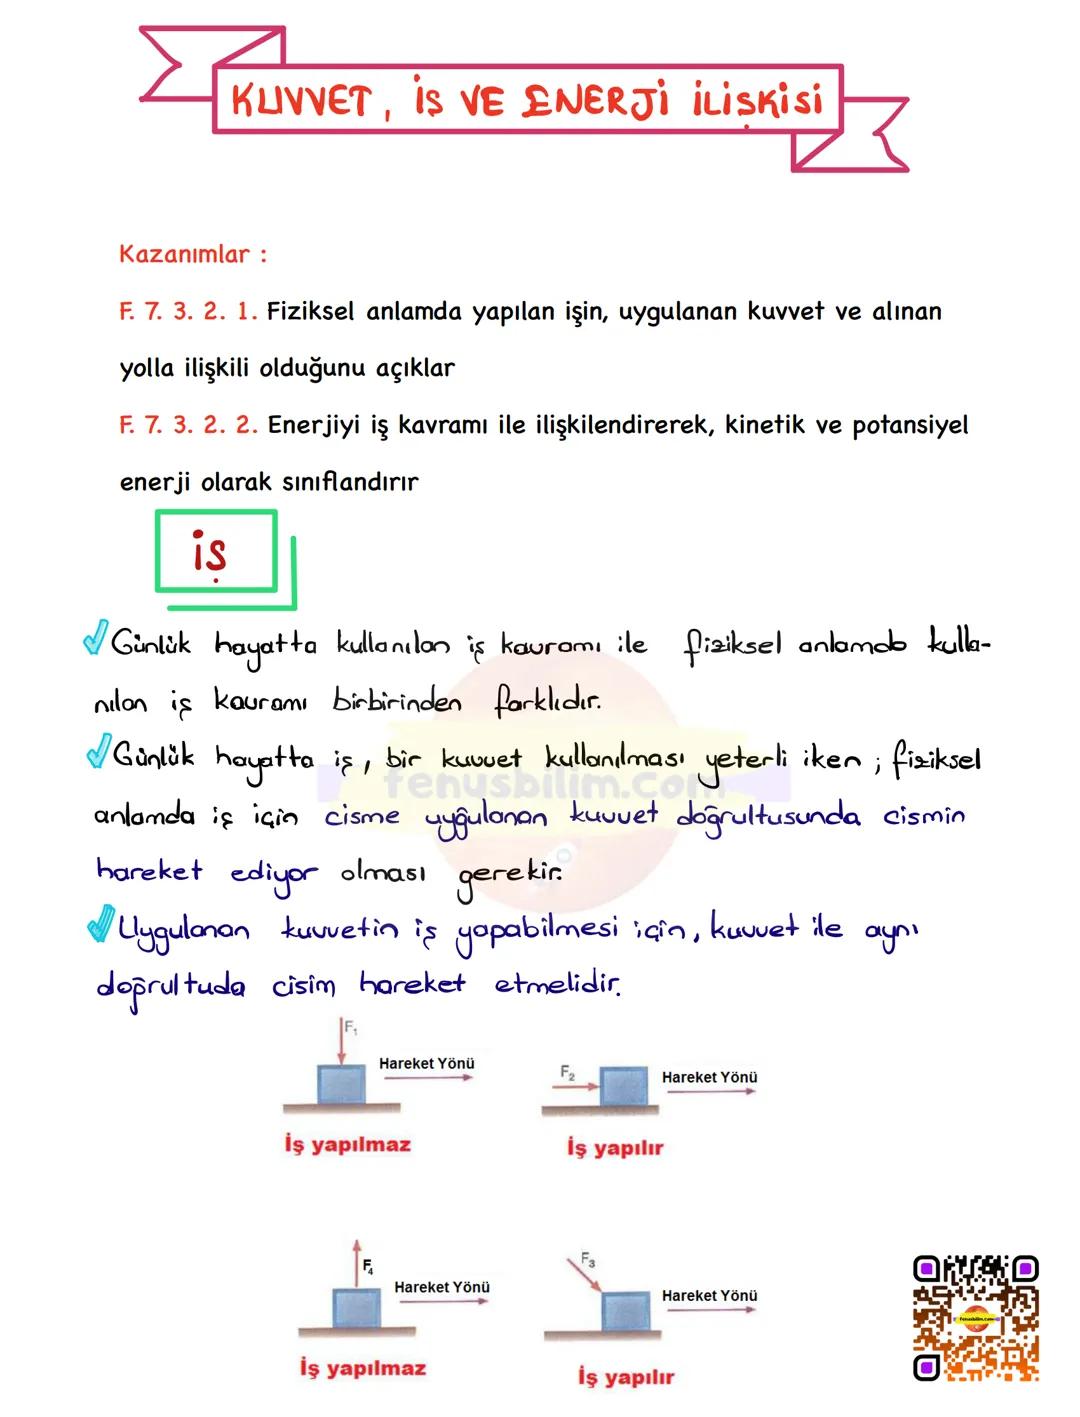 KUVVET, İŞ VE ENERJİ İLİŞKİSİ
Kazanımlar :
F. 7. 3. 2. 1. Fiziksel anlamda yapılan işin, uygulanan kuvvet ve alınan
yolla ilişkili olduğunu açıklar
F. 7. 3. 2. 2. Enerjiyi iş kavramı ile ilişkilendirerek, kinetik ve potansiyel
enerji olarak sınıflandırır
İŞ
Günlük hayatta kullanılan iş kavramı ile fiziksel anlamda kulla-
nılan iş kavramı birbirinden farklıdır.
Günlük hayatta iş, bir kuvvet kullanılması yeterli iken ; fiziksel
fenusbilim.com
anlamda iş için cisme uygulanan kuvvet doğrultusunda cismin
hareket ediyor olması gerekir.
Uygulanan kuvvetin iş yapabilmesi için, kuvvet ile aynı
doğrultuda cisim hareket etmelidir.
F₁
Hareket Yönü
İş yapılmaz
F₂
Hareket Yönü
İş yapılır
F₄
Hareket Yönü
İş yapılmaz
F₃
Hareket Yönü
İş yapılır
fenusbilim.com